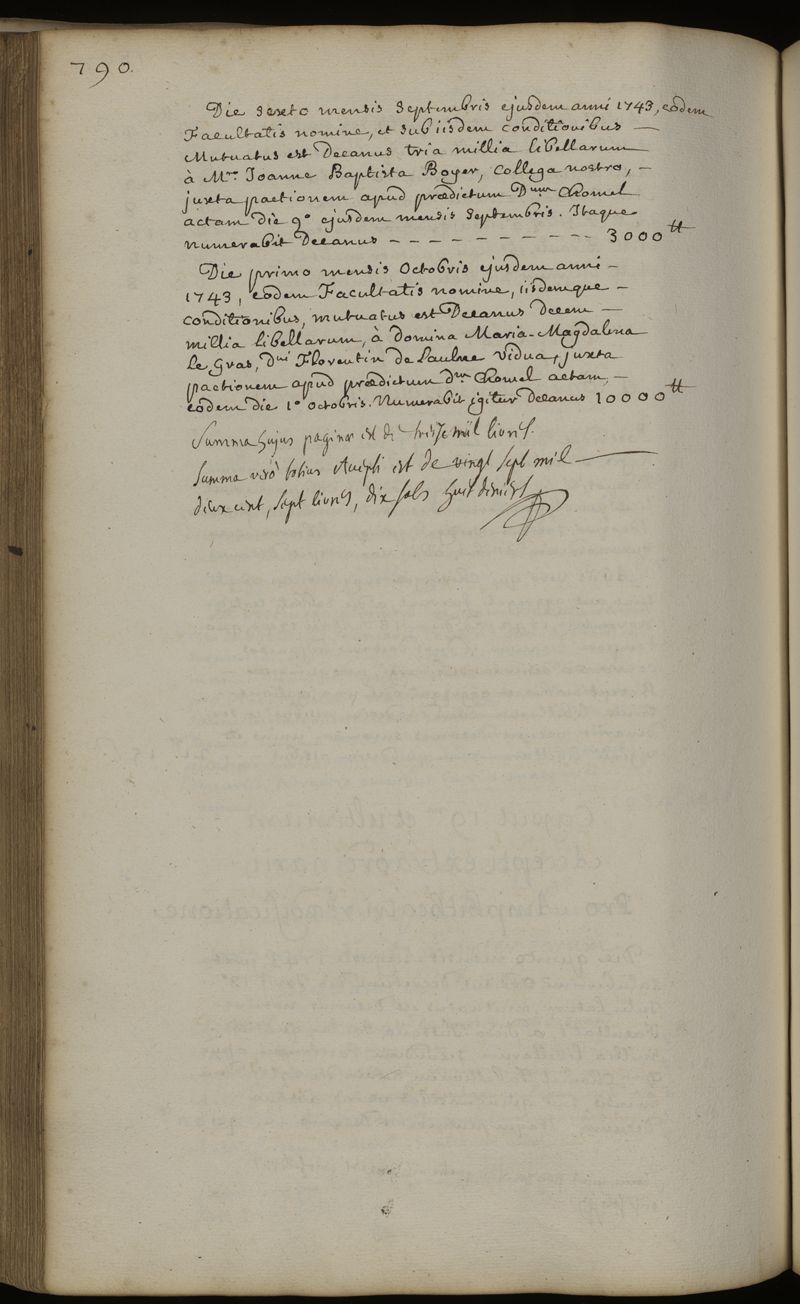 790.
Die sexto mensis Septembris ejusdem anni 1743, eodem
Facultatis nomine, et sub iisdem conditionibus —
Mutuatus est Decanus tria millia libellarum
à Mro. Joanne Baptista Boyer, Collega nostro, —
juxta pactionem apud prædictum Dnum Chomel
actam die 9º ejusdem mensis Septembris. Itaque
numerabit Decanus — — — — — — — — — — 3000 ₶
Die primo mensis Octobris ejusdem anni —
1743, eodem Facultatis nomine, iisdemque —
conditionibus, mutuatus est Decanus decem —
millia libellarum, à domina Maria-Magdalena
Le Gras, Dni Florentin de Laulne vidua, juxta
pactionem apud prædictum dnm Chomel actam, —
eodem die 1º Octobris. Numerabit igitur Decanus 10000 ₶
Summa hujus paginæ est de treize mil livres.
Summa verò totius Accepti est de vingt sept mil —
deux cent, sept livres, dix sols huit deniers